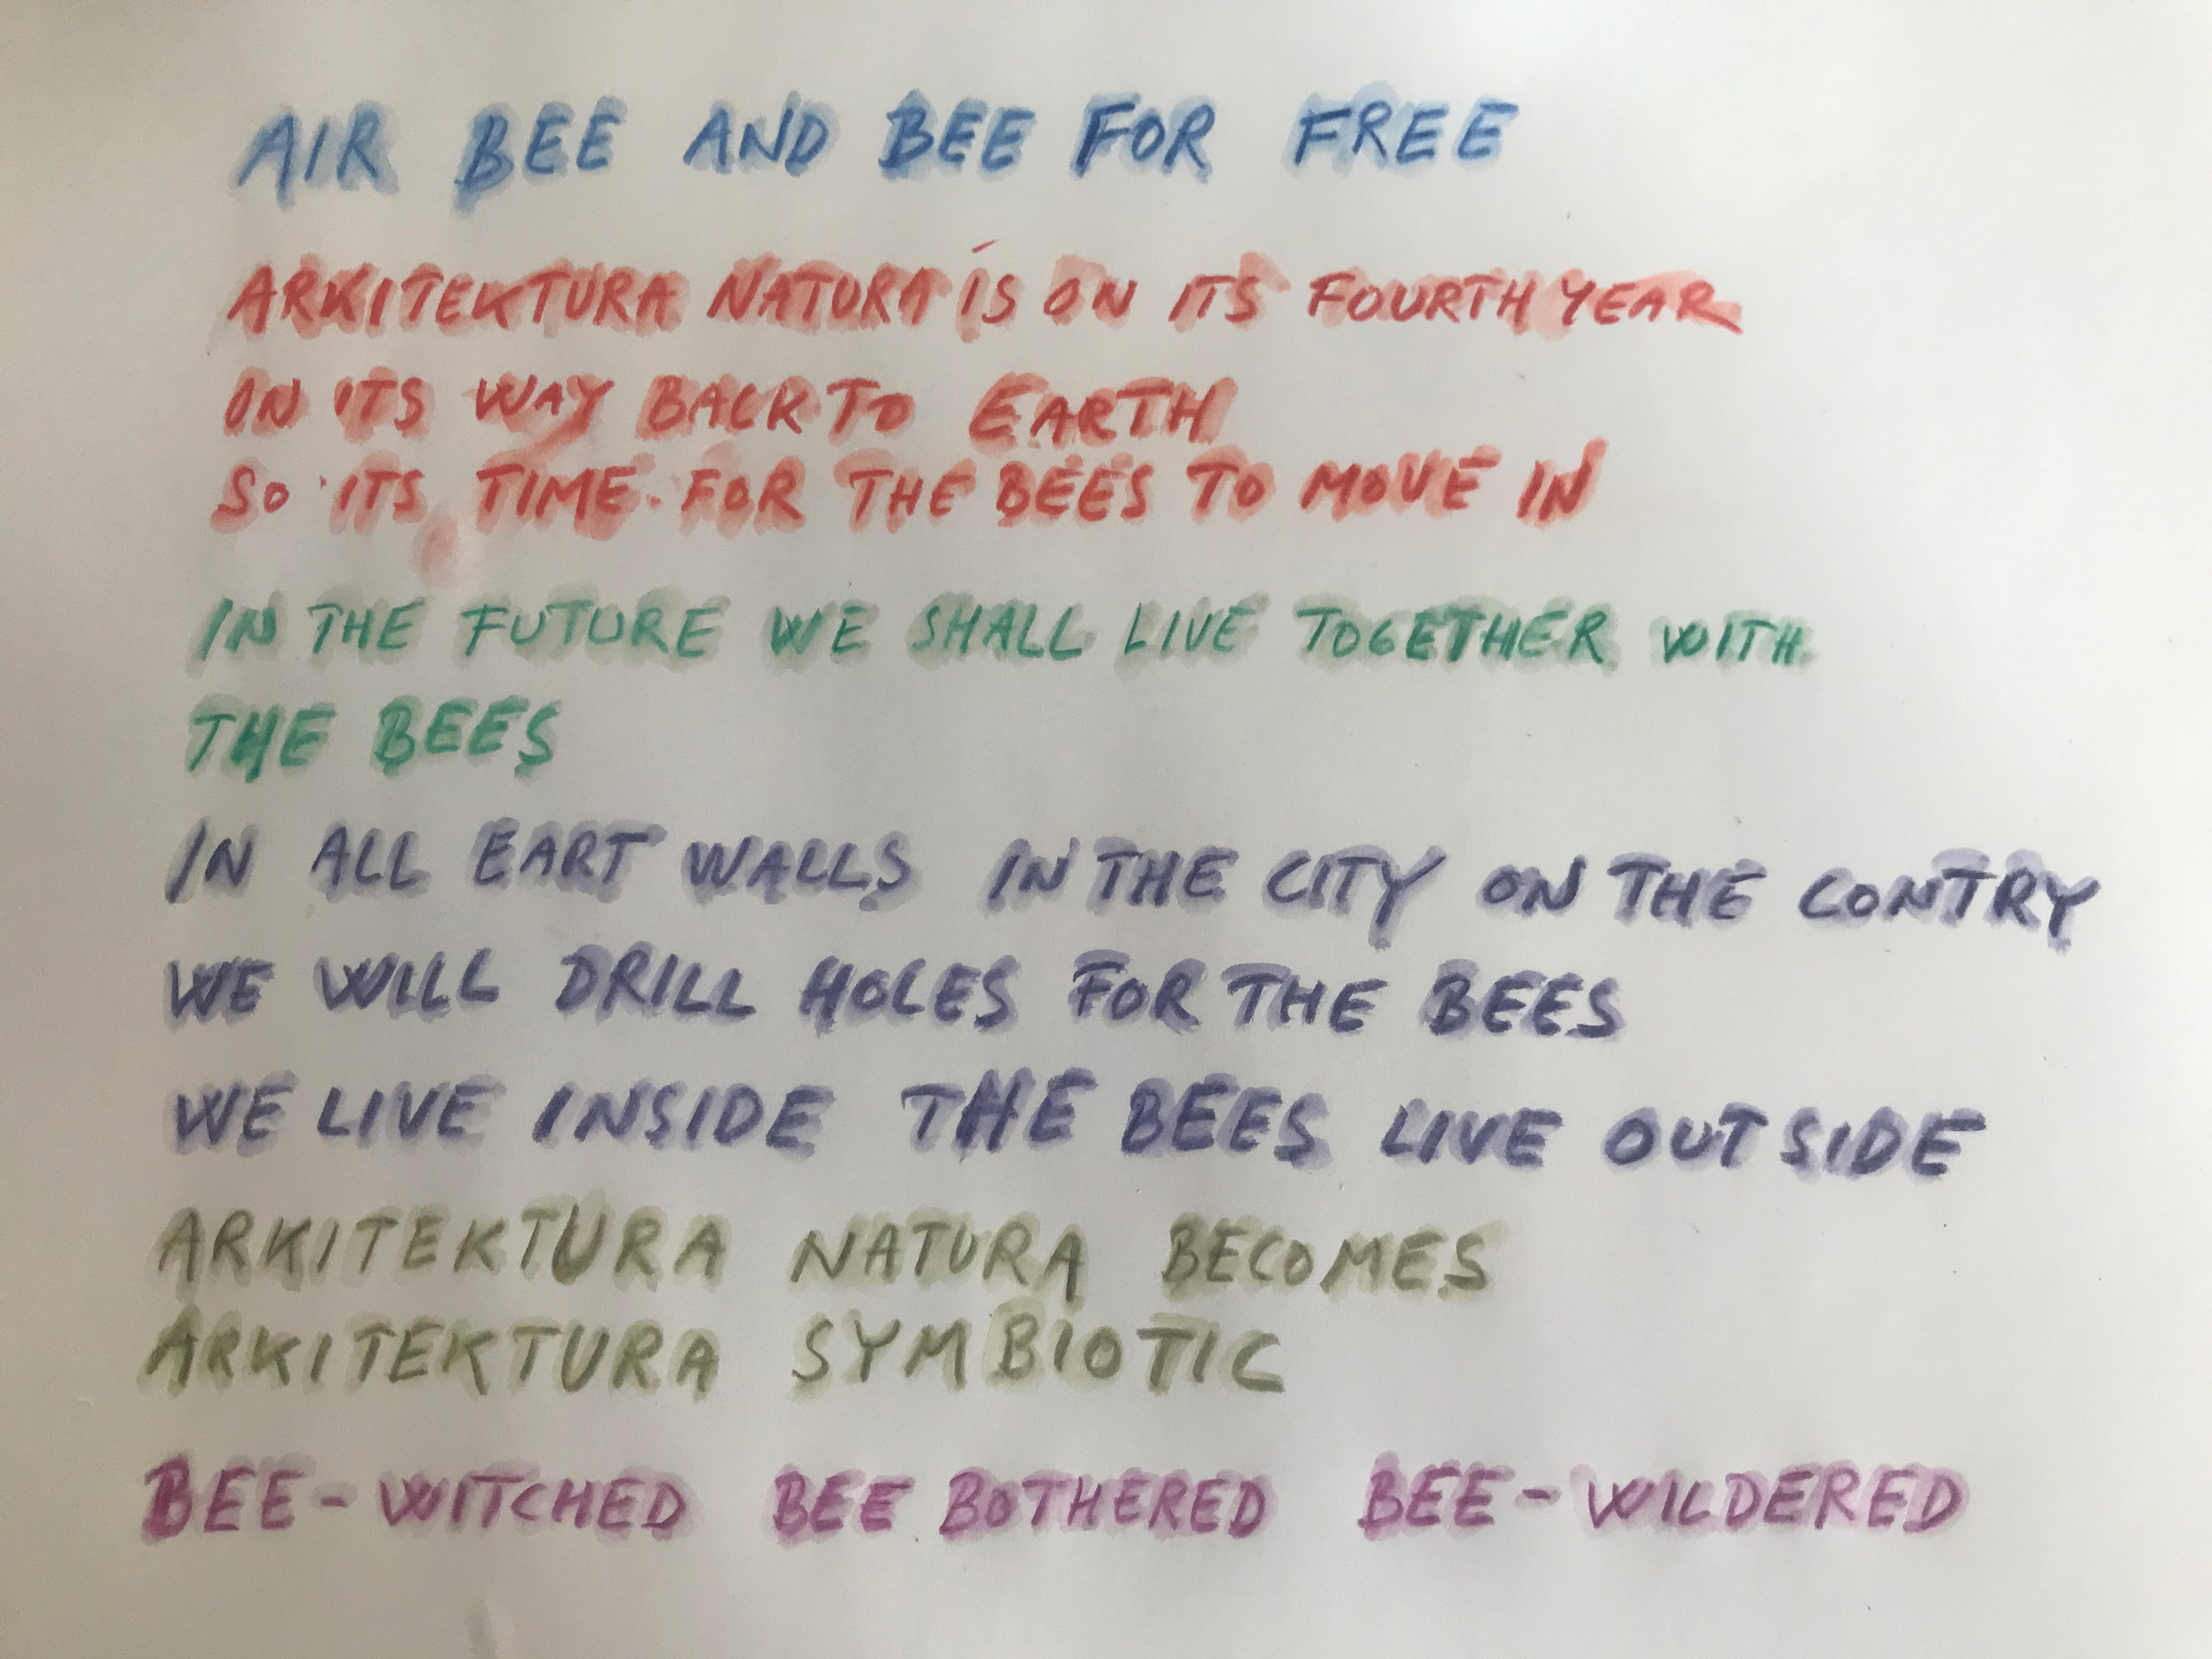 AIR BEE AND BEE FOR FREE
ARKITEKTURA NATURA IS ON ITS FOURTH YEAR
ON ITS WAY BACK TO EARTH
SO ITS TIME FOR THE BEES TO MOVE IN
IN THE FUTURE WE SHALL LIVE TOGETHER WITH
THE BEES
IN ALL EART WALLS IN THE CITY ON THE CONTRY
WE WILL DRILL HOLES FOR THE BEES
WE LIVE INSIDE THE BEES LIVE OUTSIDE
ARKITEKTURA NATURA BECOMES
ARKITEKTURA SYMBIOTIC
BEE-WITCHED BEE BOTHERED BEE-WILDERED